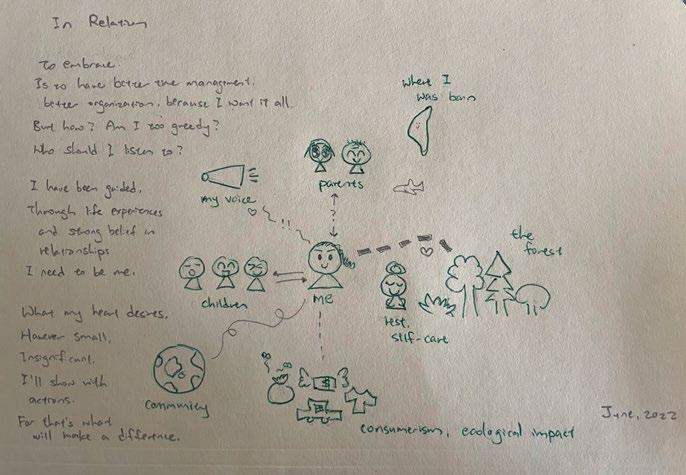 In Relation
To embrace.
Is to have better time management.
better organization, because I want it all.
But how? Am I too greedy?
Who should I listen to?
I have been guided,
Through life experiences
and strong belief in
relationships
I need to be me.
What my heart desires,
However small,
Insignificant.
I'll show with
actions.
For that's what
will make a difference.
where I
was born
parents
my voice
?
!!
the
forest
children
me
rest,
self-care
community
$
consumerism, ecological impact
June, 2022